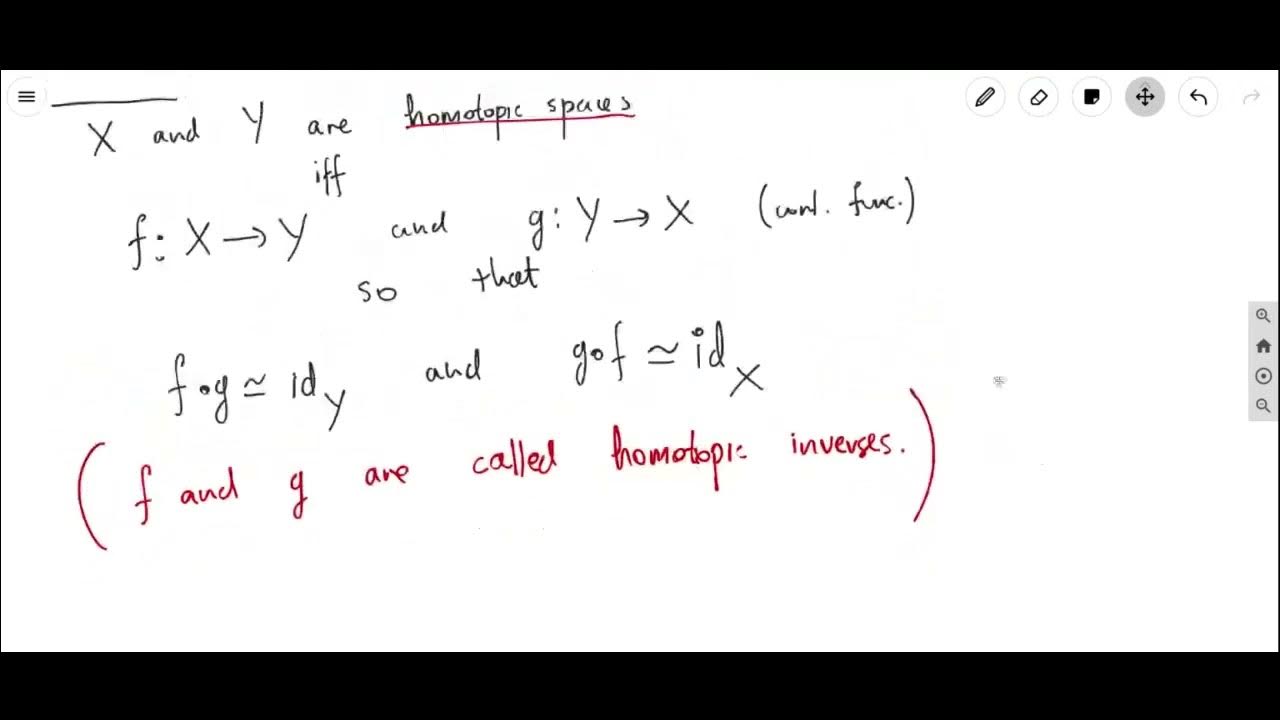 X and Y are homotopic spaces
iff
f: X → Y and g: Y → X (cont. func.)
so that
f∘g ≃ id_Y and g∘f ≃ id_X
(f and g are called homotopic inverses.)